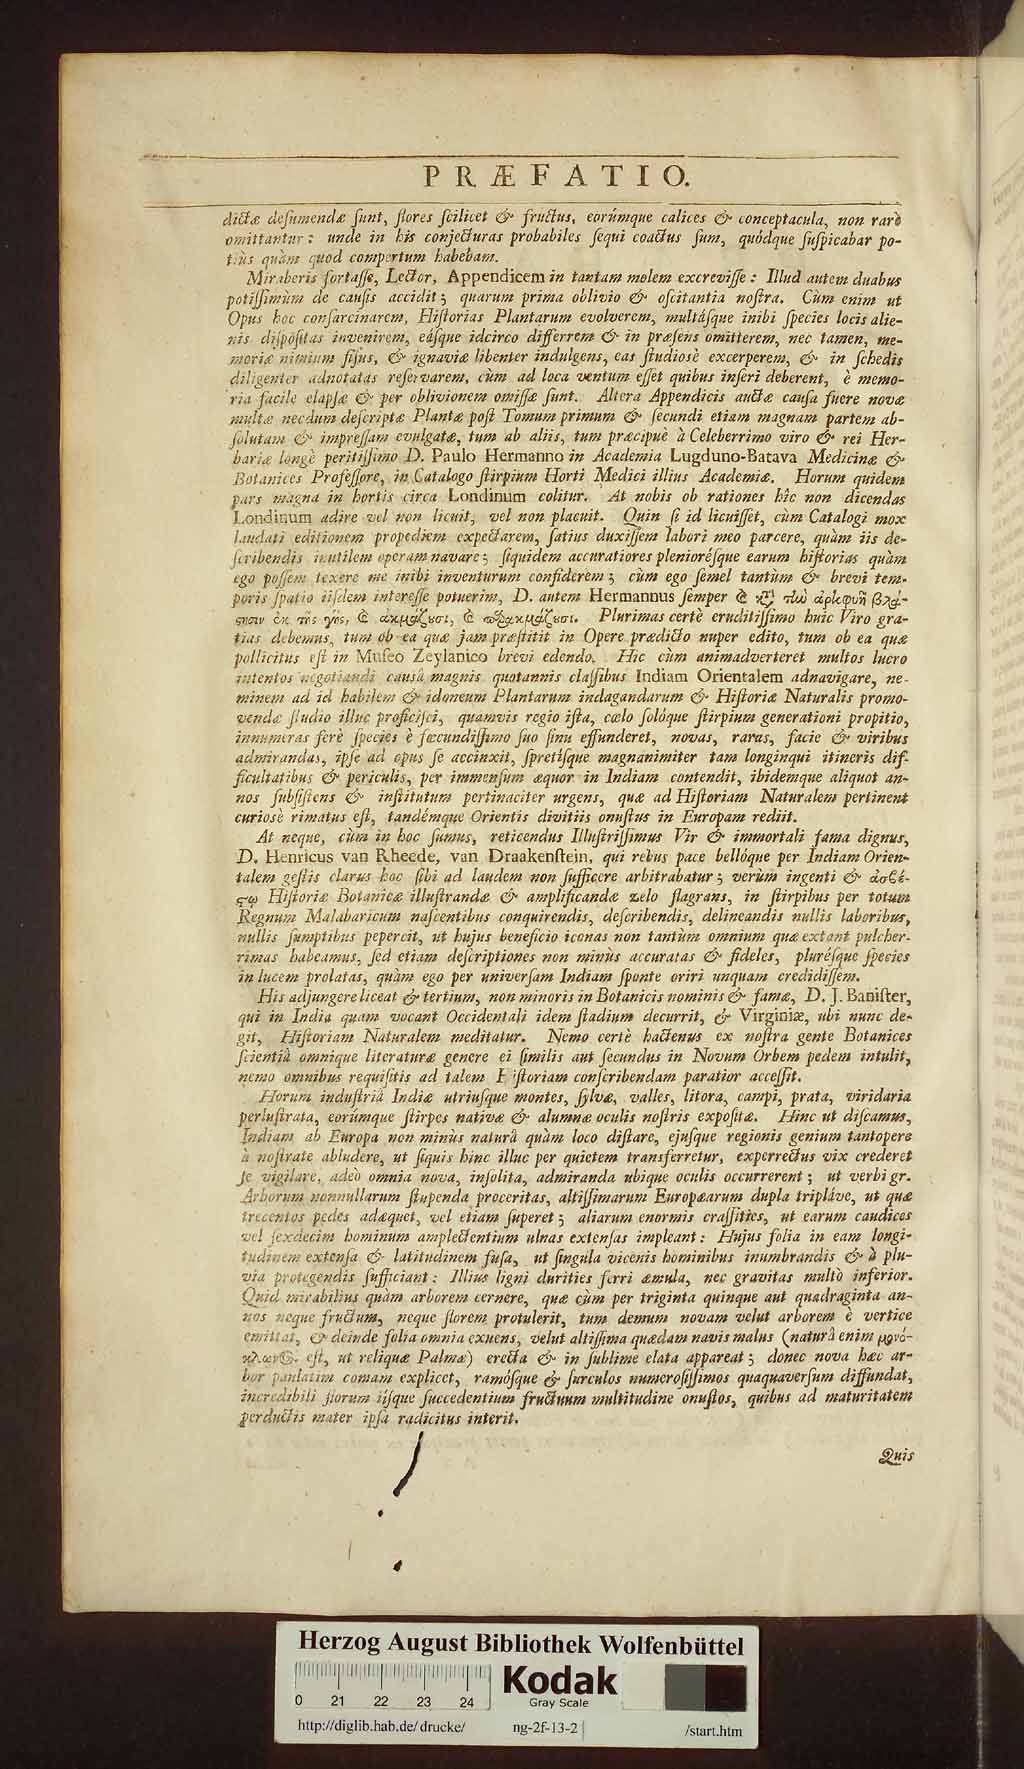 PRÆFATIO.
dictæ deſumendæ ſunt, flores ſcilicet & fructus, eorúmque calices & conceptacula, non rarò
omittantur: unde in his conjecturas probabiles ſequi coactus ſum, quódque ſuſpicabar po-
tiùs quàm quod compertum habebam.
Miraberis fortaſſe, Lector, Appendicem in tantam molem excreviſſe: Illud autem duabus
potiſſimùm de cauſis accidit; quarum prima oblivio & oſcitantia noſtra. Cùm enim ut
Opus hoc conſarcinarem, Hiſtorias Plantarum evolverem, multáſque inibi ſpecies locis alie-
nis diſpoſitas invenirem, eáſque idcirco differrem & in præſens omitterem, nec tamen, me-
moriæ nimium fiſus, & ignaviæ libenter indulgens, eas ſtudiosè excerperem, & in ſchedis
diligenter adnotatas reſervarem, cùm ad loca ventum eſſet quibus inſeri deberent, è memo-
ria facile elapſæ & per oblivionem omiſſæ ſunt. Altera Appendicis auctæ cauſa fuere novæ
multæ necdum deſcriptæ Plantæ poſt Tomum primum & ſecundi etiam magnam partem ab-
ſolutam & impreſſam evulgatæ, tum ab aliis, tum præcipuè à Celeberrimo viro & rei Her-
bariæ longè peritiſſimo D. Paulo Hermanno in Academia Lugduno-Batava Medicinæ &
Botanices Profeſſore, in Catalogo ſtirpium Horti Medici illius Academiæ. Horum quidem
pars magna in hortis circa Londinum colitur. At nobis ob rationes hîc non dicendas
Londinum adire vel non licuit, vel non placuit. Quin ſi id licuiſſet, cùm Catalogi mox
laudati editionem propediem expectarem, ſatius duxiſſem labori meo parcere, quàm iis de-
ſcribendis inutilem operam navare; ſiquidem accuratiores plenioréſque earum hiſtorias quàm
ego poſſem texere me inibi inventurum confiderem; cùm ego ſemel tantùm & brevi tem-
poris ſpatio iiſdem intereſſe potuerim, D. autem Hermannus ſemper & κỳ τἰω ἀρτιφυῆ βλά-
ςησιν ἐκ τῆς γῆς, & ἀκμάζυσι, & παρακμάζυσι. Plurimas certè eruditiſſimo huic Viro gra-
tias debemus, tum ob ea quæ jam præſtitit in Opere prædicto nuper edito, tum ob ea quæ
pollicitus eſt in Muſeo Zeylanico brevi edendo. Hic cùm animadverteret multos lucro
intentos negotiandi causâ magnis quotannis claſſibus Indiam Orientalem adnavigare, ne-
minem ad id habilem & idoneum Plantarum indagandarum & Hiſtoriæ Naturalis promo-
vendæ ſtudio illuc proficiſci, quamvis regio iſta, cœlo ſolóque ſtirpium generationi propitio,
innumeras ferè ſpecies è fœcundiſſimo ſuo ſinu effunderet, novas, raras, facie & viribus
admirandas, ipſe ad opus ſe accinxit, ſpretiſque magnanimiter tam longinqui itineris dif-
ficultatibus & periculis, per immenſum æquor in Indiam contendit, ibidemque aliquot an-
nos ſubſiſtens & inſtitutum pertinaciter urgens, quæ ad Hiſtoriam Naturalem pertinent
curiosè rimatus eſt, tandémque Orientis divitiis onuſtus in Europam rediit.
At neque, cùm in hoc ſumus, reticendus Illuſtriſſimus Vir & immortali fama dignus,
D. Henricus van Rheede, van Draakenſtein, qui rebus pace bellóque per Indiam Orien-
talem geſtis clarus hoc ſibi ad laudem non ſufficere arbitrabatur; verùm ingenti & ἀσβέ-
ςῳ Hiſtoriæ Botanicæ illuſtrandæ & amplificandæ zelo flagrans, in ſtirpibus per totum
Regnum Malabaricum naſcentibus conquirendis, deſcribendis, delineandis nullis laboribus,
nullis ſumptibus pepercit, ut hujus beneficio iconas non tantùm omnium quæ extant pulcher-
rimas habeamus, ſed etiam deſcriptiones non minùs accuratas & fideles, pluréſque ſpecies
in lucem prolatas, quàm ego per univerſam Indiam ſponte oriri unquam credidiſſem.
His adjungere liceat & tertium, non minoris in Botanicis nominis & famæ, D. J. Baniſter,
qui in India quam vocant Occidentali idem ſtadium decurrit, & Virginiæ, ubi nunc de-
git, Hiſtoriam Naturalem meditatur. Nemo certè hactenus ex noſtra gente Botanices
ſcientiâ omnique literaturæ genere ei ſimilis aut ſecundus in Novum Orbem pedem intulit,
nemo omnibus requiſitis ad talem Hiſtoriam conſcribendam paratior acceſſit.
Horum induſtriâ Indiæ utriuſque montes, ſylvæ, valles, litora, campi, prata, viridaria
perluſtrata, eorúmque ſtirpes nativæ & alumnæ oculis noſtris expoſitæ. Hinc ut diſcamus,
Indiam ab Europa non minùs naturâ quàm loco diſtare, ejuſque regionis genium tantopere
à noſtrate abludere, ut ſiquis hinc illuc per quietem transferretur, experrectus vix crederet
ſe vigilare, adeò omnia nova, inſolita, admiranda ubique oculis occurrerent; ut verbi gr.
Arborum nonnullarum ſtupenda proceritas, altiſſimarum Europæarum dupla triplave, ut quæ
trecentos pedes adæquet, vel etiam ſuperet; aliarum enormis craſſities, ut earum caudices
vel ſexdecim hominum amplectentium ulnas extenſas impleant: Hujus folia in eam longi-
tudinem extenſa & latitudinem fuſa, ut ſingula vicenis hominibus inumbrandis & à plu-
via protegendis ſufficiant: Illius ligni durities ferri æmula, nec gravitas multò inferior.
Quid mirabilius quàm arborem cernere, quæ cùm per triginta quinque aut quadraginta an-
nos neque fructum, neque florem protulerit, tum demum novam velut arborem è vertice
emittat, & deinde folia omnia exuens, velut altiſſima quædam navis malus (naturâ enim μονό-
κλωνος eſt, ut reliquæ Palmæ) erecta & in ſublime elata appareat; donec nova hæc ar-
bor paulatim comam explicet, ramóſque & ſurculos numeroſiſſimos quaquaverſum diffundat,
incredibili florum iiſque ſuccedentium fructuum multitudine onuſtos, quibus ad maturitatem
perductis mater ipſa radicitus interit.
Quis
Herzog August Bibliothek Wolfenbüttel
0 21 22 23 24
Kodak
Gray Scale
http://diglib.hab.de/drucke/ ng-2f-13-2 /start.htm